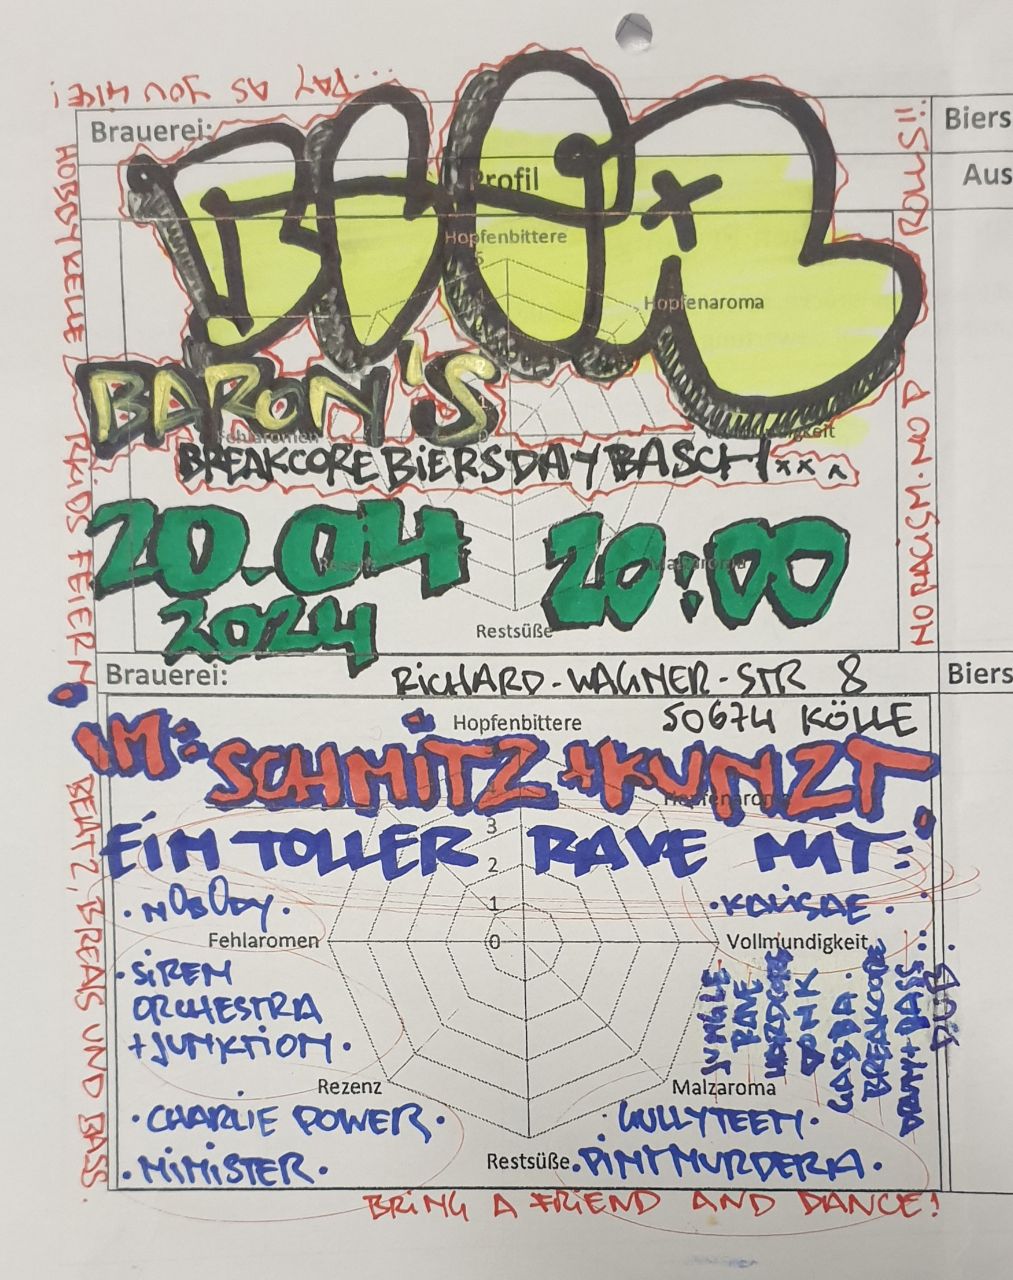 ...PAY AS YOU LIKE!
Brauerei:
Biers
Profil
Aus
Hopfenbittere
Hopfenaroma
BARON'S
Fehlaromen
BREAKCORE BIERSDAY BASCH xxx
20.04
20:00
2024
Rezenz
Malzaroma
Restsüße
Brauerei:
RICHARD-WAGNER-STR 8
Biers
Hopfenbittere
50674 KÖLLE
IM:
SCHMITZ + KUNZT
Hopfenaroma
EIN TOLLER RAVE MIT:
3
2
1
0
· NOBODY ·
Fehlaromen
Vollmundigkeit
· SIREN
ORCHESTRA
+ JUNKTION ·
JUNGLE
RAVE
HARDCORE
GABBA.
BREAKCORE
DRUM+BASS..
DUB
Rezenz
Malzaroma
· CHARLIE POWER ·
· GULLYTEEN ·
· MINISTER ·
Restsüße
· PINTMURDERA ·
BRING A FRIEND AND DANCE!
FEIERN
BEATZ, BREAS UND BASS.
NO RACISM. NO